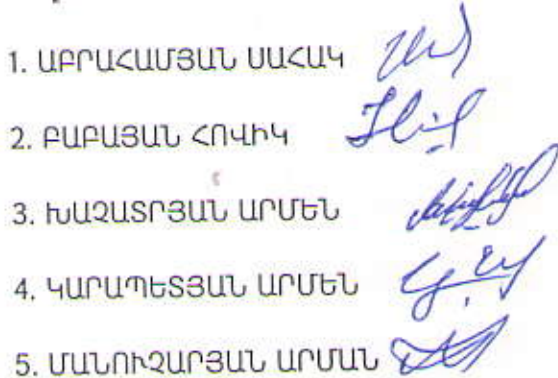 1. ԱԲՐԱՀԱՄՅԱՆ ՍԱՀԱԿ
2. ԲԱԲԱՅԱՆ ՀՈՎԻԿ
3. ԽԱՉԱՏՐՅԱՆ ԱՐՄԵՆ
4. ԿԱՐԱՊԵՏՅԱՆ ԱՐՄԵՆ
5. ՄԱՆՈՒՉԱՐՅԱՆ ԱՐՄԱՆ